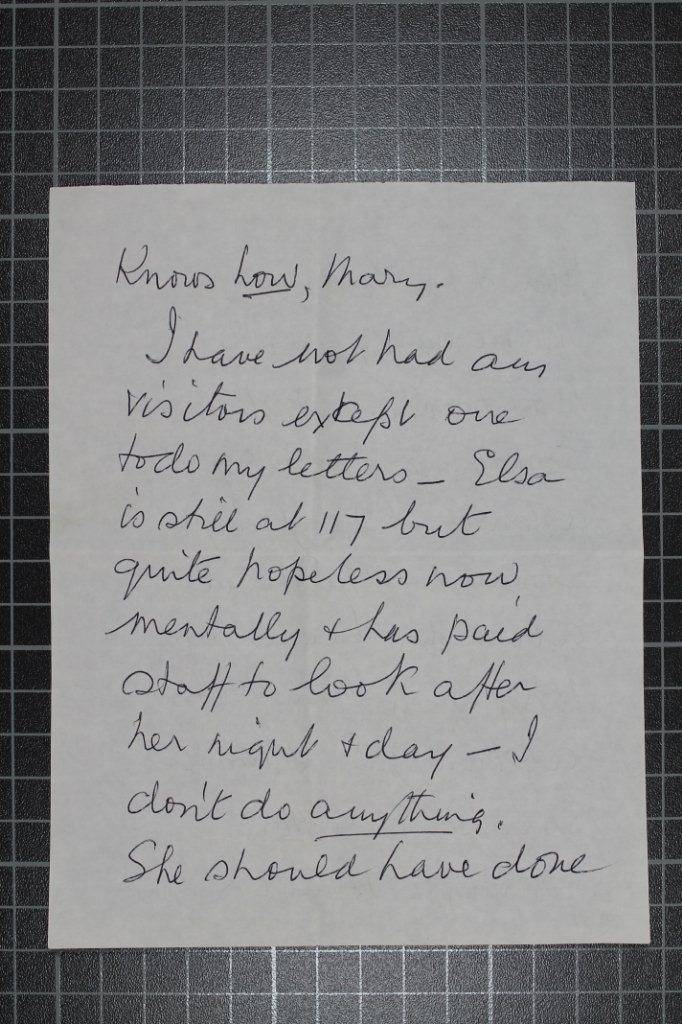 Knows how, Mary.
I have not had any
visitors except one
to do my letters – Elsa
is still at 117 but
quite hopeless now
mentally + has paid
staff to look after
her night + day – I
don't do anything.
She should have done